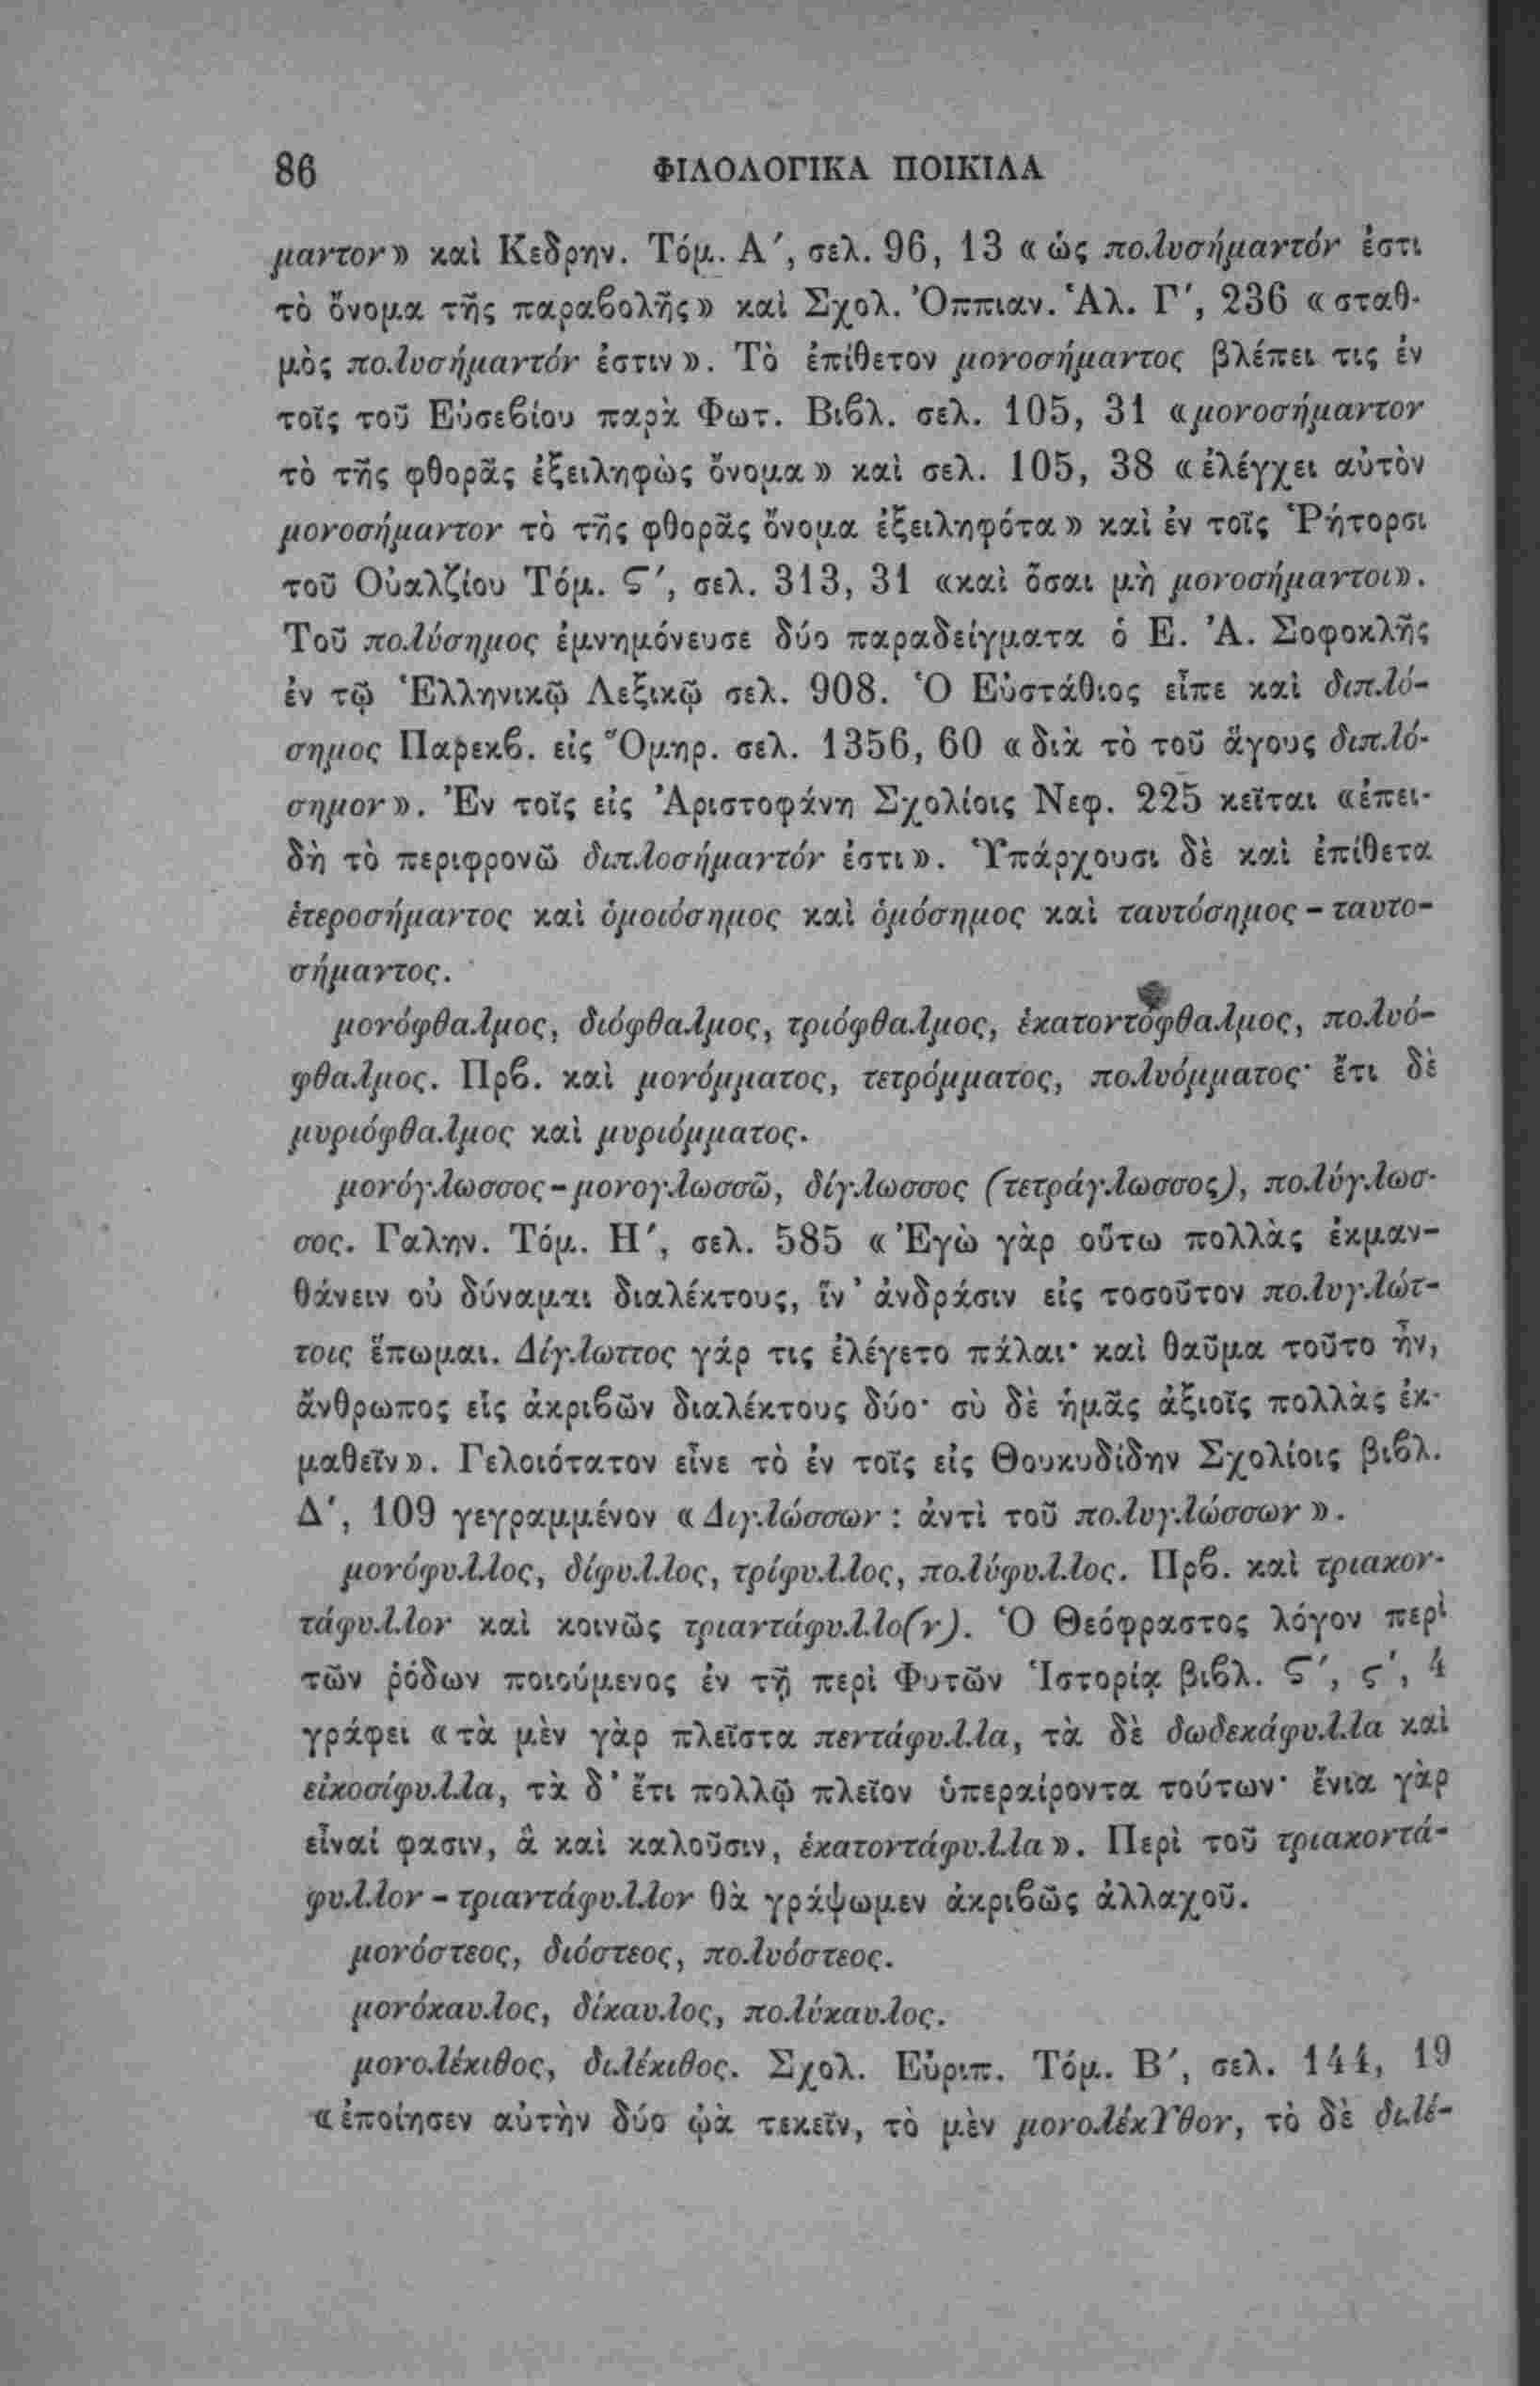 86 ΦΙΛΟΛΟΓΙΚΑ ΠΟΙΚΙΛΑ
μαντον» καὶ Κεδρην. Τόμ. Α΄, σελ. 96, 13 «ὡς πολυσήμαντόν ἐστι
τὸ ὄνομα τῆς παραβολῆς» καὶ Σχολ. Ὀππιαν. Ἁλ. Γ΄, 236 «σταθ-
μὸς πολυσήμαντόν ἐστιν». Τὸ ἐπίθετον μονοσήμαντος βλέπει τις ἐν
τοῖς τοῦ Εὐσεβίου παρὰ Φωτ. Βιβλ. σελ. 105, 31 «μονοσήμαντον
τὸ τῆς φθορᾶς ἐξειληφὼς ὄνομα» καὶ σελ. 105, 38 «ἐλέγχει αὐτὸν
μονοσήμαντον τὸ τῆς φθορᾶς ὄνομα ἐξειληφότα» καὶ ἐν τοῖς Ῥήτορσι
τοῦ Οὐαλζίου Τόμ. Ϛ΄, σελ. 313, 31 «καὶ ὅσαι μὴ μονοσήμαντοι».
Τοῦ πολύσημος ἐμνημόνευσε δύο παραδείγματα ὁ Ε. Ἀ. Σοφοκλῆς
ἐν τῷ Ἑλληνικῷ Λεξικῷ σελ. 908. Ὁ Εὐστάθιος εἶπε καὶ διπλό-
σημος Παρεκβ. εἰς Ὅμηρ. σελ. 1356, 60 «διὰ τὸ τοῦ ἄγους διπλό-
σημον». Ἐν τοῖς εἰς Ἀριστοφάνη Σχολίοις Νεφ. 225 κεῖται «ἐπει-
δὴ τὸ περιφρονῶ διπλοσήμαντόν ἐστι». Ὑπάρχουσι δὲ καὶ ἐπίθετα
ἑτεροσήμαντος καὶ ὁμοιόσημος καὶ ὁμόσημος καὶ ταυτόσημος - ταυτο-
σήμαντος.
μονόφθαλμος, διόφθαλμος, τριόφθαλμος, ἑκατοντόφθαλμος, πολυό-
φθαλμος. Πρβ. καὶ μονόμματος, τετρόμματος, πολυόμματος· ἔτι δὲ
μυριόφθαλμος καὶ μυριόμματος.
μονόγλωσσος - μονογλωσσῶ, δίγλωσσος (τετράγλωσσος), πολύγλωσ-
σος. Γαλην. Τόμ. Η΄, σελ. 585 «Ἐγὼ γὰρ οὕτω πολλὰς ἐκμαν-
θάνειν οὐ δύναμαι διαλέκτους, ἵν᾽ ἀνδράσιν εἰς τοσοῦτον πολυγλώτ-
τοις ἕπωμαι. Δίγλωττος γάρ τις ἐλέγετο πάλαι· καὶ θαῦμα τοῦτο ἦν,
ἄνθρωπος εἷς ἀκριβῶν διαλέκτους δύο· σὺ δὲ ἡμᾶς ἀξιοῖς πολλὰς ἐκ-
μαθεῖν». Γελοιότατον εἶνε τὸ ἐν τοῖς εἰς Θουκυδίδην Σχολίοις βιβλ.
Δ΄, 109 γεγραμμένον «Διγλώσσων : ἀντὶ τοῦ πολυγλώσσων».
μονόφυλλος, δίφυλλος, τρίφυλλος, πολύφυλλος. Πρβ. καὶ τριακον-
τάφυλλον καὶ κοινῶς τριαντάφυλλο(ν). Ὁ Θεόφραστος λόγον περὶ
τῶν ῥόδων ποιούμενος ἐν τῇ περὶ Φυτῶν Ἱστορίᾳ βιβλ. Ϛ΄, ϛ΄, 4
γράφει «τὰ μὲν γὰρ πλεῖστα πεντάφυλλα, τὰ δὲ δωδεκάφυλλα καὶ
εἰκοσίφυλλα, τὰ δ᾽ ἔτι πολλῷ πλεῖον ὑπεραίροντα τούτων· ἔνια γὰρ
εἶναί φασιν, ἃ καὶ καλοῦσιν, ἑκατοντάφυλλα». Περὶ τοῦ τριακοντά-
φυλλον - τριαντάφυλλον θὰ γράψωμεν ἀκριβῶς ἀλλαχοῦ.
μονόστεος, διόστεος, πολυόστεος.
μονόκαυλος, δίκαυλος, πολύκαυλος.
μονολέκιθος, διλέκιθος. Σχολ. Εὐριπ. Τόμ. Β΄, σελ. 144, 19
«ἐποίησεν αὐτὴν δύο ᾠὰ τεκεῖν, τὸ μὲν μονολέκΥθον, τὸ δὲ διλέ-